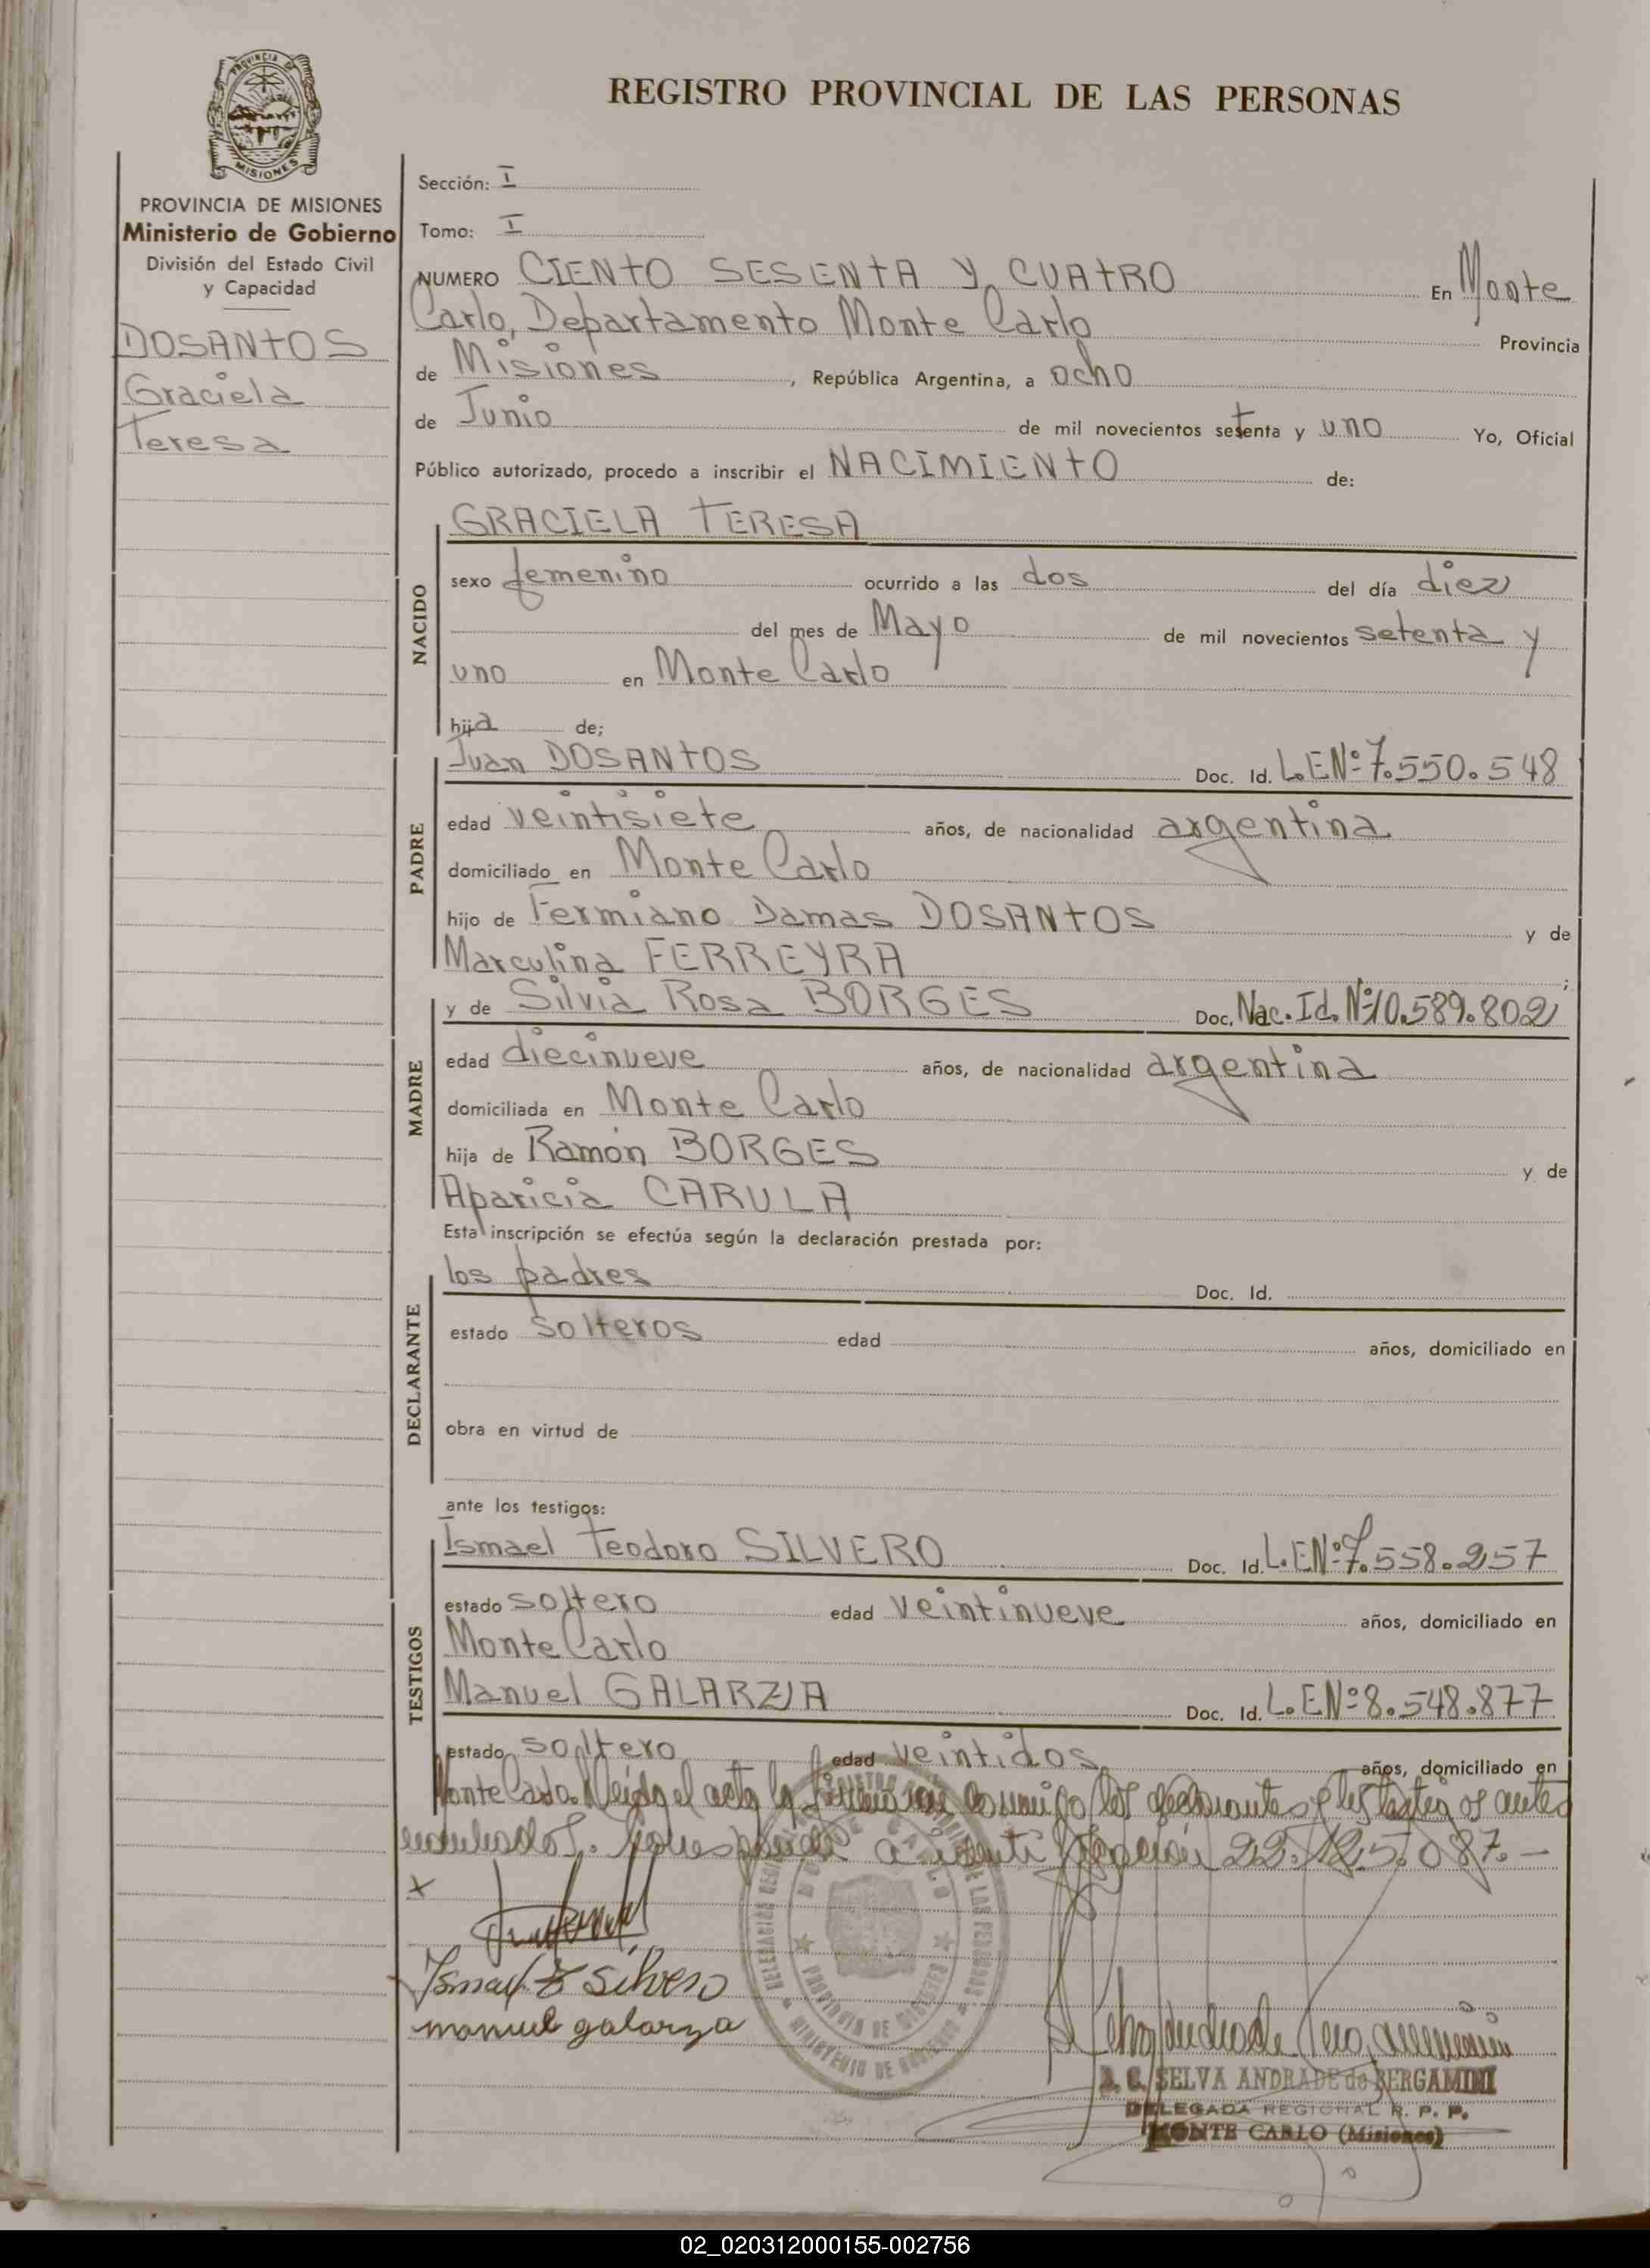 PROVINCIA DE
MISIONES
REGISTRO PROVINCIAL DE LAS PERSONAS
PROVINCIA DE MISIONES
Ministerio de Gobierno
División del Estado Civil
y Capacidad
DOSANTOS
Graciela
Teresa
Sección: I
Tomo: I
NUMERO CIENTO SESENTA Y CUATRO En Monte
Carlo, Departamento Monte Carlo Provincia
de Misiones, República Argentina, a ocho
de Junio de mil novecientos setenta y uno Yo, Oficial
Público autorizado, procedo a inscribir el NACIMIENTO de:
NACIDO
GRACIELA TERESA
sexo femenino ocurrido a las dos del día diez
del mes de Mayo de mil novecientos setenta y
uno en Monte Carlo
hija de;
PADRE
Juan DOSANTOS Doc. Id. L.E.Nº 7.550.548
edad veintisiete años, de nacionalidad argentina
domiciliado en Monte Carlo
hijo de Fermiano Damas DOSANTOS y de
Marculina FERREYRA ;
MADRE
y de Silvia Rosa BORGES Doc. Nac. Id. Nº 10.589.802
edad diecinueve años, de nacionalidad argentina
domiciliada en Monte Carlo
hija de Ramón BORGES y de
Aparicia CARULA
Esta inscripción se efectúa según la declaración prestada por:
DECLARANTE
los padres Doc. Id.
estado solteros edad años, domiciliado en
obra en virtud de
ante los testigos:
TESTIGOS
Ismael Teodoro SILVERO Doc. Id. L.E.Nº 7.558.257
estado soltero edad veintinueve años, domiciliado en
Monte Carlo
Manuel GALARZA Doc. Id. L.E.Nº 8.548.877
estado soltero edad veintidos años, domiciliado en
Monte Carlo. Leída el acta la firman conmigo los declarantes y los testigos antes
. a 22.125.087.-
X
Ismael T Silvero
manuel galarza
PROVINCIA DE MISIONES
MINISTERIO DE GOBIERNO
SELVA ANDRADE de BERGAMINI
DELEGADA REGIONAL R. P. P.
MONTE CARLO (Misiones)
02_020312000155-002756